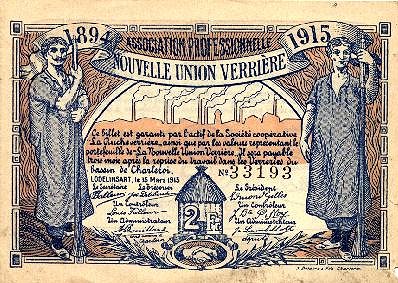 1894
1915
ASSOCIATION PROFESSIONNELLE
NOUVELLE UNION VERRIÈRE
Ce billet est garanti par l'actif de la Société coopérative
La Ruche verrière, ainsi que par les valeurs représentant le
portefeuille de La Nouvelle Union Verrière. Il sera payable
trois mois après la reprise du travail dans les Verreries du
bassin de Charleroi.
No 33193
LODELINSART, le 15 Mars 1915
Le Secrétaire Le Trésorier
Le Président
Un Contrôleur
Un Contrôleur
Un Administrateur
Un Administrateur
2 Fr